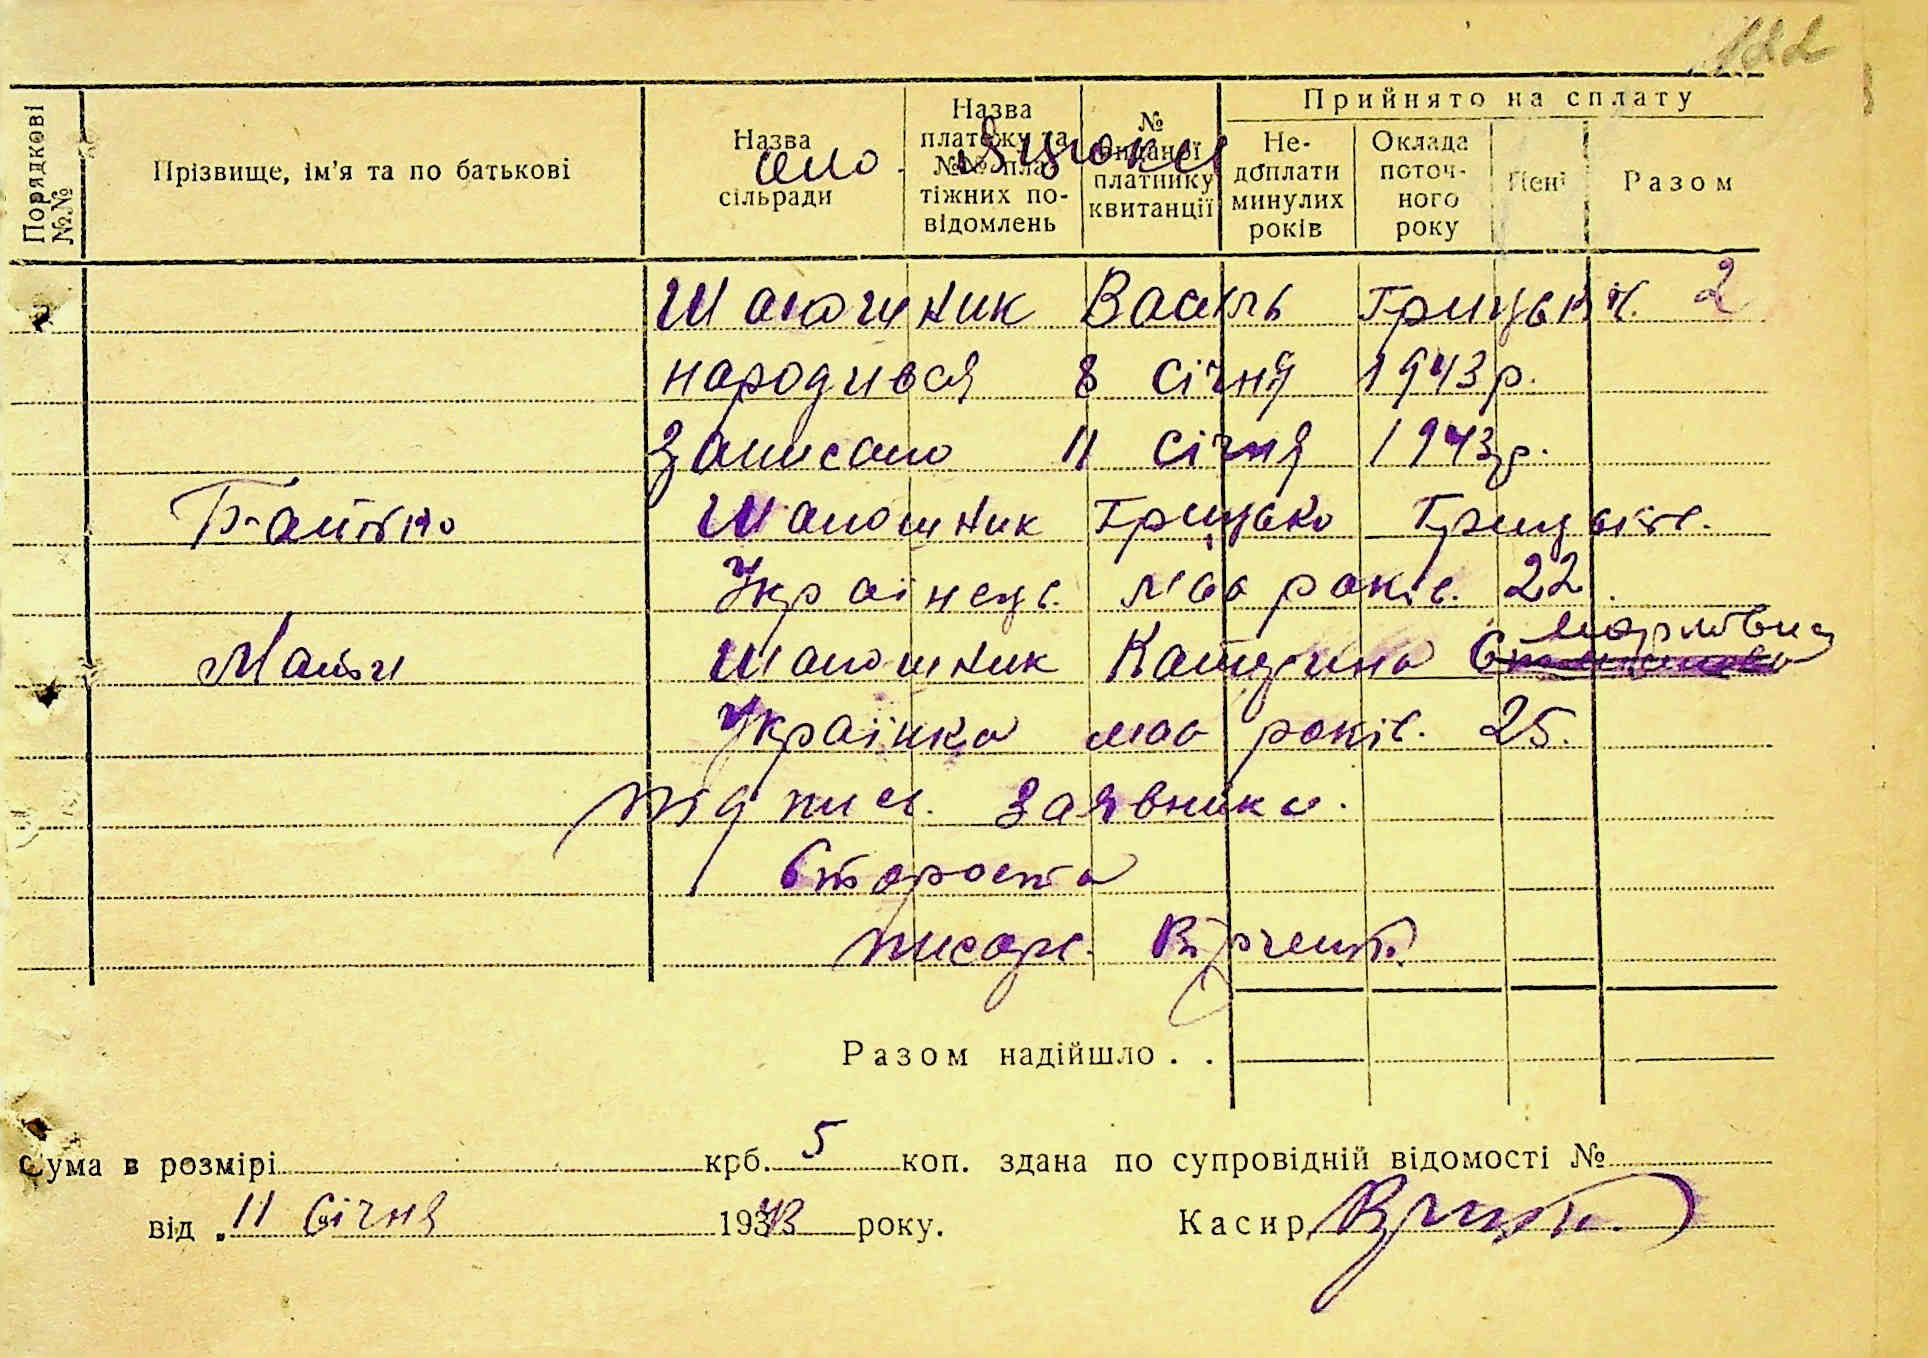 122
Порядкові №№
Прізвище, ім'я та по батькові
Назва сільради
Назва платежу та №№ пла-
тіжних по-
відомлень
№ виданої платнику квитанції
Прийнято на сплату
Не-
доплати
минулих
років
Оклада
поточ-
ного
року
Пені
Разом
село
Шапошник Василь Грицьвич. 2
народився 8 січня 1943 р.
Записано 11 січня 1943 р.
Батько Шапошник Грицько
Українець. має років. 22.
Марківна
Мати Шапошник Катерина
Українка має років. 25.
підпис. заявника.
Староста
писарь.
Разом надійшло . .
Сума в розмірі крб. 5 коп. здана по супровідній відомості №
від „ 11 січня 1943 року. Касир